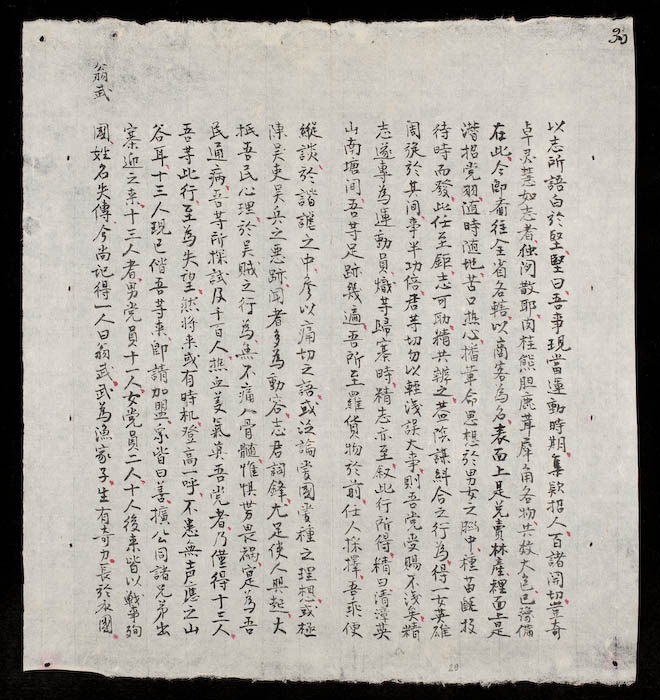 以志所語白於堅堅曰吾事現當運動時期集欵招人百諸関切奇
卓灵慧如志者独闲散耶肉桂熊胆鹿茸犀角各物共数大包已豫備
在此今即往全省各轄以商客為名表面上是兌賣林產裡面上是
潜招党羽随時随地苦口热心播革命思想於男女之腦中種苗
待時而發此任至鉅志可助精共辨之益陰謀糾合之行為得一女英雄
周旋於其间事半功倍君等切勿以輕淺誤大事則吾党受賜不淺矣精
志遂專為運動員熾等歸寨時精志亦至叙此行所得精曰清漳英
山南塘间吾等足跡幾遍吾所至羅貨物於前任人採擇吾乘便
縱談於諧謔之中參以痛切之語或泛論愛國愛種之理想或極
陳吴吏吴兵之悪跡闻者多為動容志君詞鋒尤足使人興起大
抵吾民心理於吴賊之行為無不痛入骨髓惟惧劳畏禍寔為吾
民通病吾等所探試及千百人热血美氣真吾党者乃僅得十三人
吾等此行至為失望然將来或有時机登高一呼不患無声應之山
谷耳十三人現已偕吾等来即請加盟众皆曰善擴公同諸兄弟出
寨迎之来十三人者男党員十一人女党員二人十人後来皆以戰事殉
國姓名失傳今尚記得一人曰翁武武為漁家子生有奇力長於水國
翁武